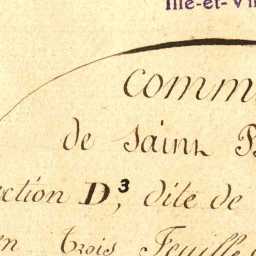 Ille-et-Vil
comm
de saint
ction D³, dite de
en trois Feuille